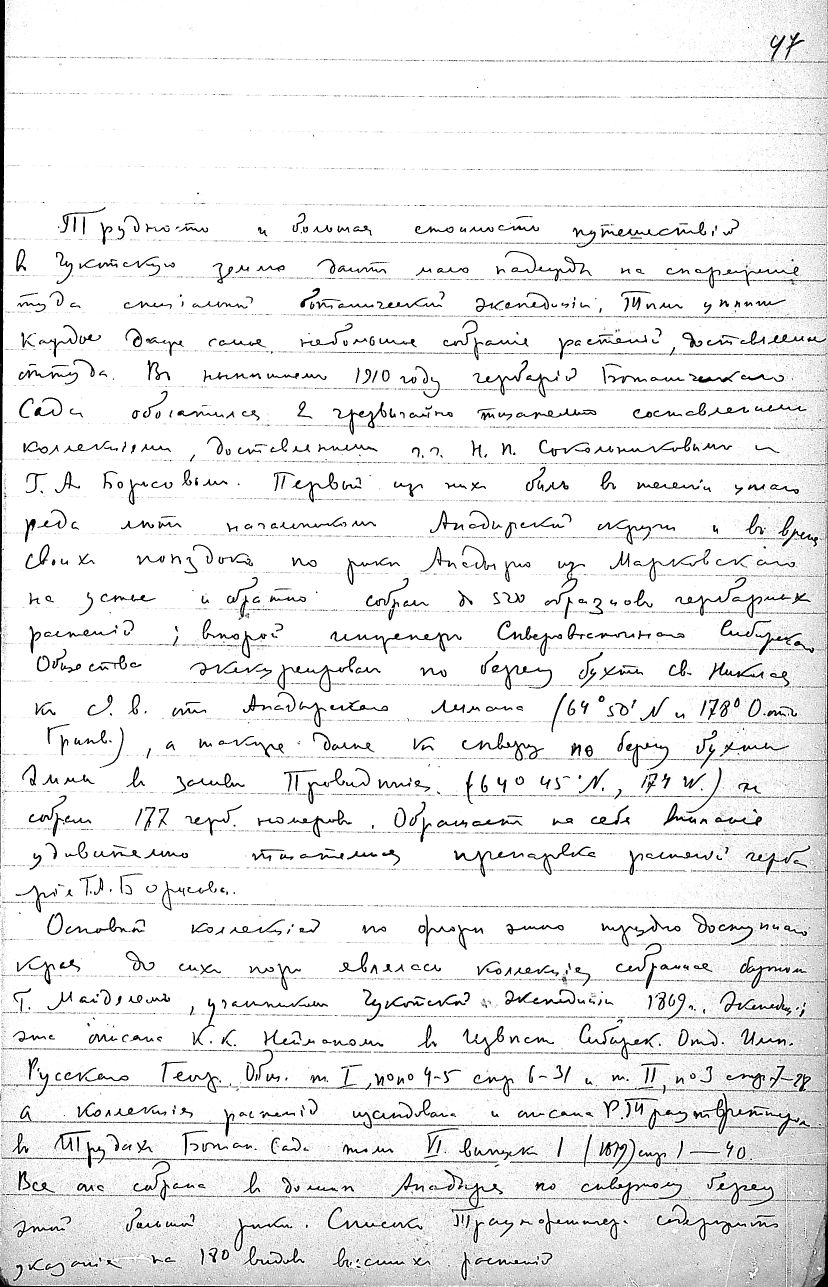 47
Трудность и большая стоимость путешествій
в Чукотскую землю дают мало надежды на снаряженіе
туда спеціальной ботанической экспедиціи. Тѣмъ цѣннѣе
каждое даже самое небольшое собраніе растеній, доставленное
оттуда. Въ нынѣшнемъ 1910 году гербарій Ботаническаго
Сада обогатился 2 чрезвычайно тщательно составленными
коллекціями, доставленными г.г. Н. П. Сокольниковымъ и
Г. А. Борисовымъ. Первый изъ них былъ въ теченіи цѣлаго
ряда лѣтъ начальникомъ Анадырской округи и во время
своихъ поѣздокъ по рѣкѣ Анадырю из Марковскаго
на устье и обратно собрал до 520 образцовъ гербарных
растеній; второй инженеръ Сѣверовосточнаго Сибирскаго
Общества экскурсировал по берегу бухты св. Николая
къ С. В. отъ Анадырскаго Лимана (64° 50' N и 178° O. отъ
Гринв.), а также далѣе къ сѣверу по берегу бухты
Эммы въ заливѣ Провидѣнія. (64° 45' N., 174 W.) и
собрал 177 герб. номеровъ. Обращает на себя вниманіе
удивительно тщательная препаровка растеній герба
рія Г. А. Борисова.
Основной коллекціей по флорѣ этого трудно доступнаго
края до сихъ поръ являлась коллекція собранная барономъ
Г. Майделемъ, участникомъ Чукотской экспедиціи 1869 г. Экспедиція
эта описана К. К. Нейманомъ в Извѣст. Сибирск. Отд. Имп.
Русскаго Геогр. Общ. т. I, №№ 4-5 стр. 6-31 и т. II, №3 стр. 7-28
а коллекція растеній изслѣдована и описана Р. Траутветтеромъ
в Трудахъ Ботан. Сада том VI. выпускъ 1 (1879) стр 1—40
Все она собрана в долинѣ Анадыря по сѣверному берегу
этой большой рѣки. Списокъ Траутветтера содержитъ
указанія на 180 видовъ высшихъ растеній